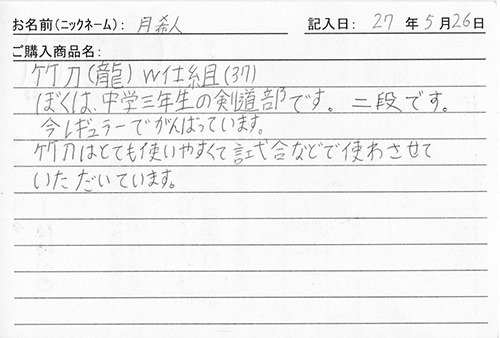 お名前(ニックネーム): 月希人 記入日: 27 年 5 月 26 日
ご購入商品名:
竹刀(龍) W仕組(37)
ぼくは、中学三年生の剣道部です。 二段です。
今レギュラーでがんばっています。
竹刀はとても使いやすくて試合などで使わさせて
いただいています。